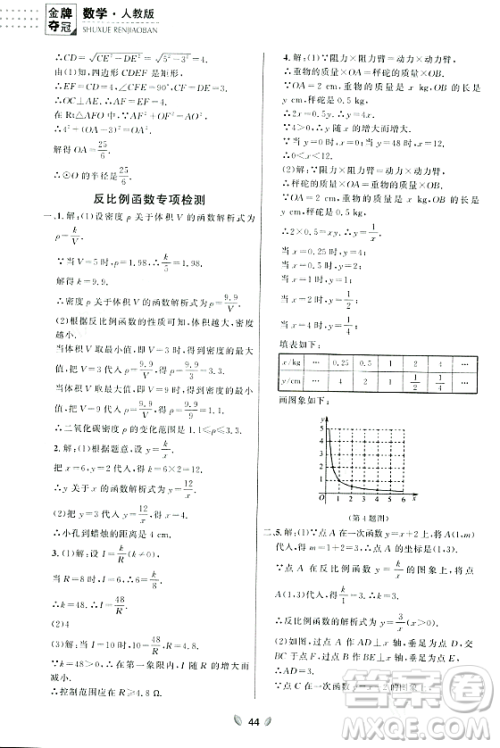 金牌夺冠 数学·人教版
SHUXUE RENJIAOBAN
∴CD=√(CE²−DE²)=√(5²−3²)=4.
由(1)知,四边形CDEF是矩形,
∴EF=CD=4,∠CFE=90°,CF=DE=3.
∵OA=OC,∴OF=OA−3.
在Rt△AFO中,∵AF²+OF²=OA²,
∴4²+(OA−3)²=OA²,
解得OA=25/6.
∴⊙O的半径是25/6.
反比例函数专项检测
一、1.解:(1)设密度ρ关于体积V的函数解析式为
ρ=k/V.
∵当V=5时,ρ=1.98,∴k/5=1.98.
解得k=9.9.
∴密度ρ关于体积V的函数解析式为ρ=9.9/V.
(2)根据反比例函数的性质可知,体积V越大,密度ρ
越小.
当体积V取最小值,即V=3时,得到密度ρ的最大值.
当体积V取最大值,即V=9时,得到密度ρ的最小值.
把V=9代入ρ=9.9/V,得ρ=9.9/9=1.1.
∴二氧化碳密度ρ的变化范围是1.1≤ρ≤3.3.
2.解:(1)根据题意,设y=k/x.
把x=6,y=2代入,得k=6×2=12.
∴y关于x的函数解析式为y=12/x.
(2)把x=3代入y=12/x,得y=4.
∴小孔到蜡烛的距离为4 cm.
3.(1)解:设I=k/R(k≠0),
当R=8时,I=6,∴6=k/8.
∴k=48.∴I=48/R.
(2)解:当I=10时,R=4.8.
∵k=48>0,
∴在第一象限内I随R的增大而减小.
∴控制范围应在R≥4.8 Ω.
4.解:(1)∵阻力×阻力臂=动力×动力臂,
∴重物的质量×OA=秤砣的质量×OB.
∵OA=2 cm,重物的质量为x kg,OB的长为y cm,
秤砣的质量为0.5 kg,
∴2x=0.5y.∴y=4x.
∵4>0,∴y随x的增大而增大.
∵当y=0时,x=0;当y=48时,x=12,
(2)解:∵阻力×阻力臂=动力×动力臂,
∴秤砣的质量×OA=重物的质量×OB.
∵OA=2 cm,重物的质量为x kg,OB的长为y cm,
秤砣的质量为0.5 kg,
∴2×0.5=xy.∴y=1/x.
当x=0.25时,y=1/0.25=4;
当x=0.5时,y=1/0.5=2;
当x=1时,y=1;
当x=2时,y=1/2;
当x=4时,y=1/4.
填表如下:
x/kg … 0.25 0.5 1 2 4 …
y/cm … 4 2 1 1/2 1/4 …
画图象如下:
y
5
4
3
2
1
O 1 2 3 4 5 6 x
(第4题图)
二、5.解:(1)∵点A在一次函数的图象上,将A(1,m)
代入,得m=1+2=3,∴点A的坐标为(1,3).
∵点A在反比例函数y=k/x的图象上,将A(1,3)
代入,得k=3.
∴反比例函数的解析式为y=3/x.
(2)如图,过点A作AD⊥x轴,垂足为点D,
∵点C在一次函数
44
答案圈